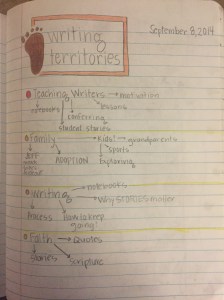 September 8, 2014
writing
territories
Teaching Writers → motivation
notebooks lessons
conferring
student stories
Family → Kids! → grandparents
sports
ADOPTION Explaining
Writing → notebooks
Why stories matter
Process how to keep
going!
Faith → Quotes
Stories
Scripture